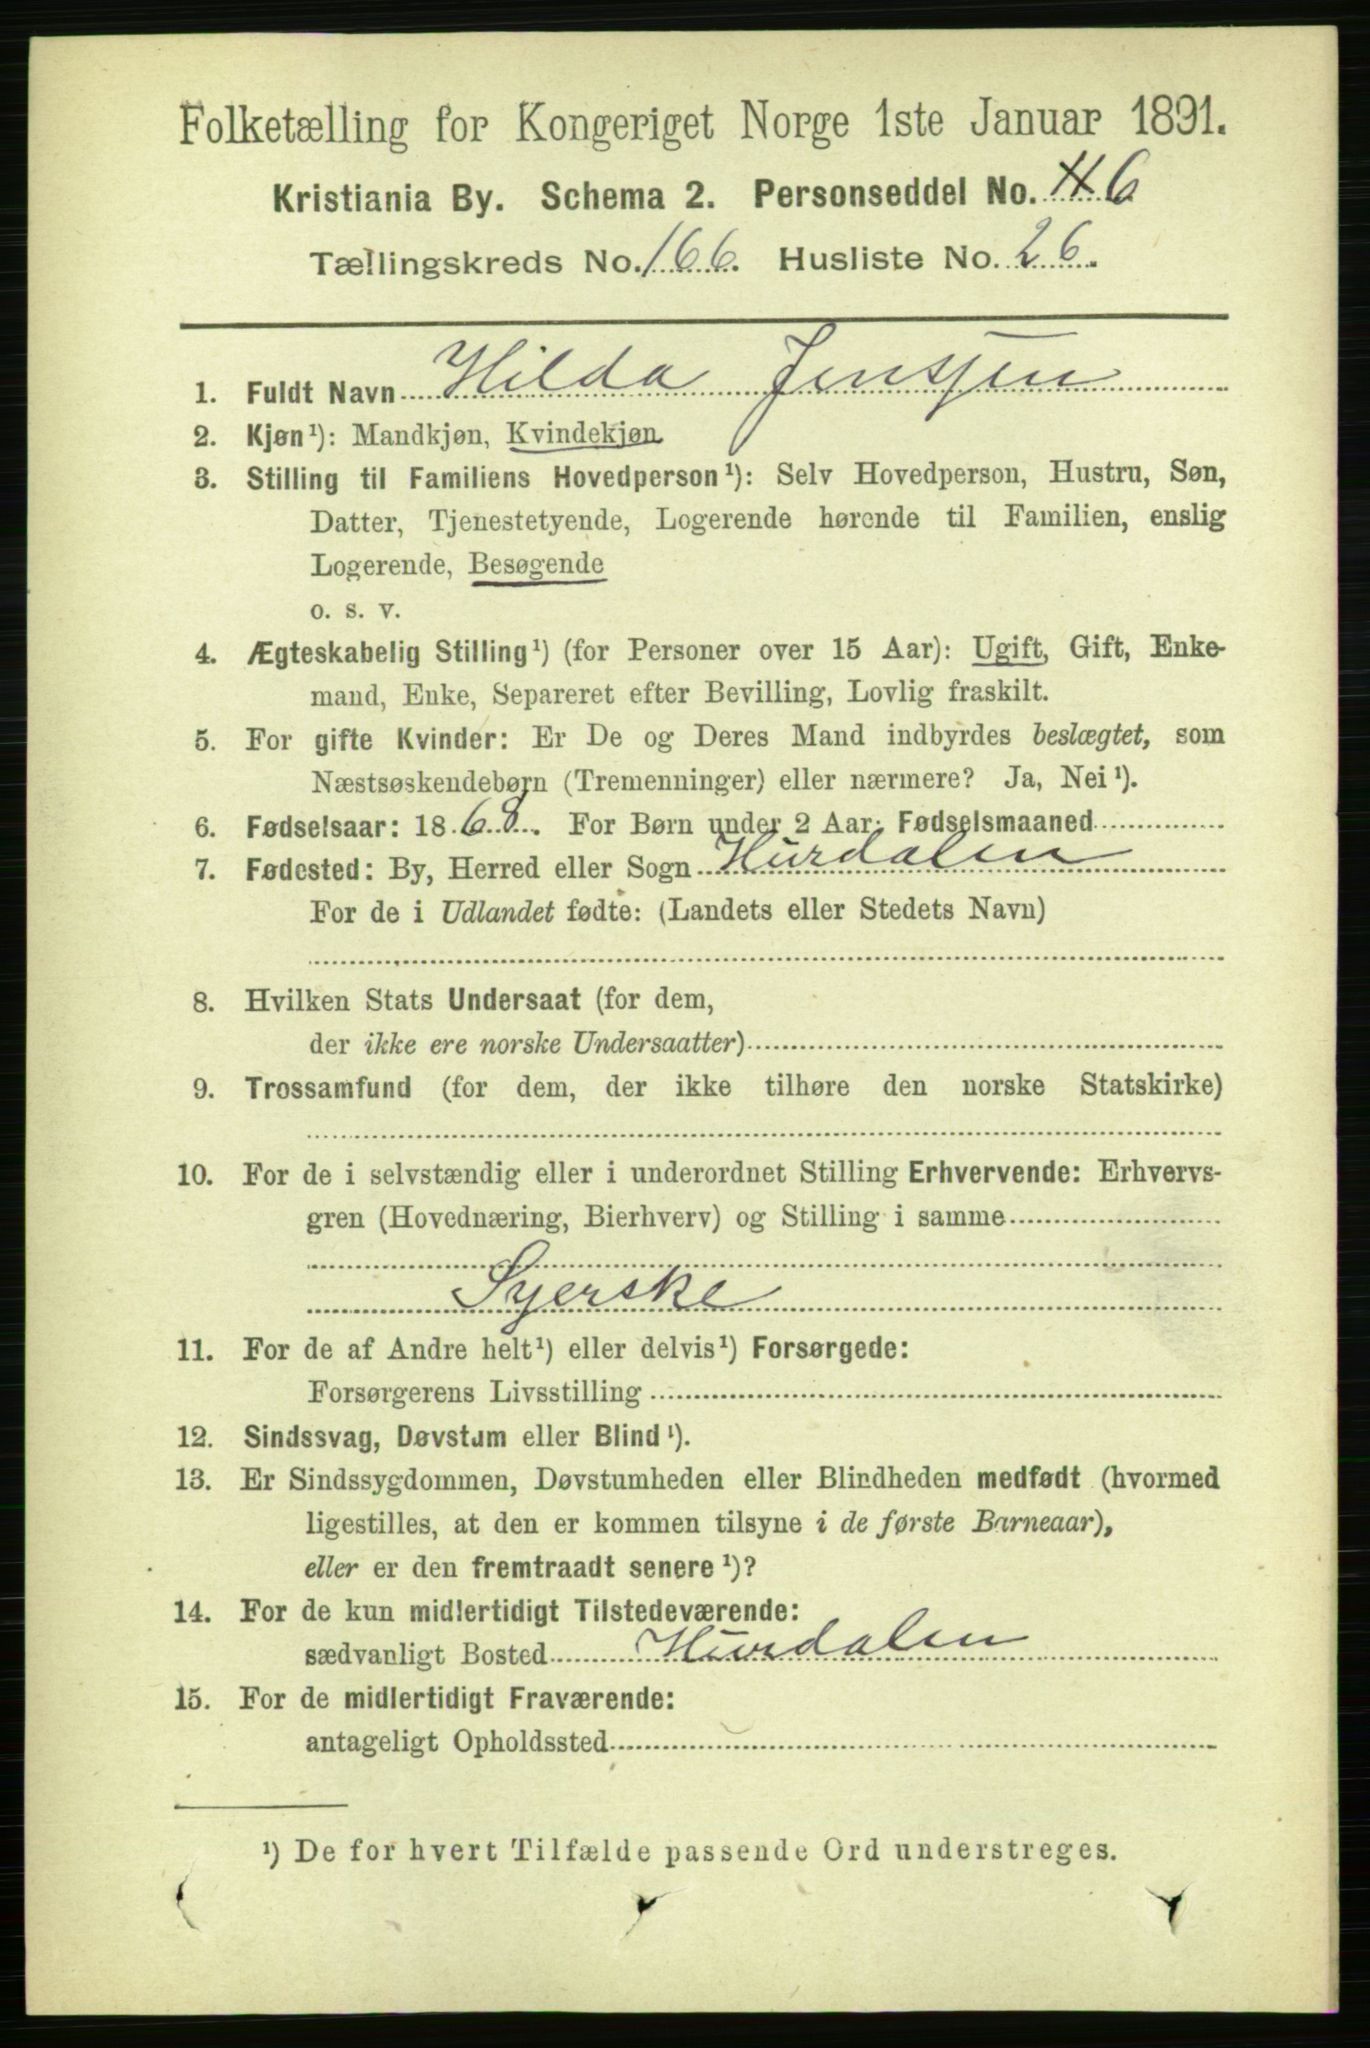 Folketælling for Kongeriget Norge 1ste Januar 1891.
Kristiania By. Schema 2. Personseddel No. 6
Tællingskreds No. 166. Husliste No. 26.
1. Fuldt Navn Hilda Jenssen
2. Kjøn¹): Mandkjøn, Kvindekjøn.
3. Stilling til Familiens Hovedperson¹): Selv Hovedperson, Hustru, Søn,
Datter, Tjenestetyende, Logerende hørende til Familien, enslig
Logerende, Besøgende
o. s. v.
4. Ægteskabelig Stilling¹) (for Personer over 15 Aar): Ugift, Gift, Enke-
mand, Enke, Separeret efter Bevilling, Lovlig fraskilt.
5. For gifte Kvinder: Er De og Deres Mand indbyrdes beslægtet, som
Næstsøskendebørn (Tremenninger) eller nærmere? Ja, Nei¹).
6. Fødselsaar: 1868. For Børn under 2 Aar: Fødselsmaaned
7. Fødested: By, Herred eller Sogn Hurdalen
For de i Udlandet fødte: (Landets eller Stedets Navn)
8. Hvilken Stats Undersaat (for dem,
der ikke ere norske Undersaatter)
9. Trossamfund (for dem, der ikke tilhøre den norske Statskirke)
10. For de i selvstændig eller i underordnet Stilling Erhvervende: Erhvervs-
gren (Hovednæring, Bierhverv) og Stilling i samme
Syerske
11. For de af Andre helt¹) eller delvis¹) Forsørgede:
Forsørgerens Livsstilling
12. Sindssvag, Døvstum eller Blind¹).
13. Er Sindssygdommen, Døvstumheden eller Blindheden medfødt (hvormed
ligestilles, at den er kommen tilsyne i de første Barneaar),
eller er den fremtraadt senere¹)?
14. For de kun midlertidigt Tilstedeværende:
sædvanligt Bosted Hurdalen
15. For de midlertidigt Fraværende:
antageligt Opholdssted
¹) De for hvert Tilfælde passende Ord understreges.